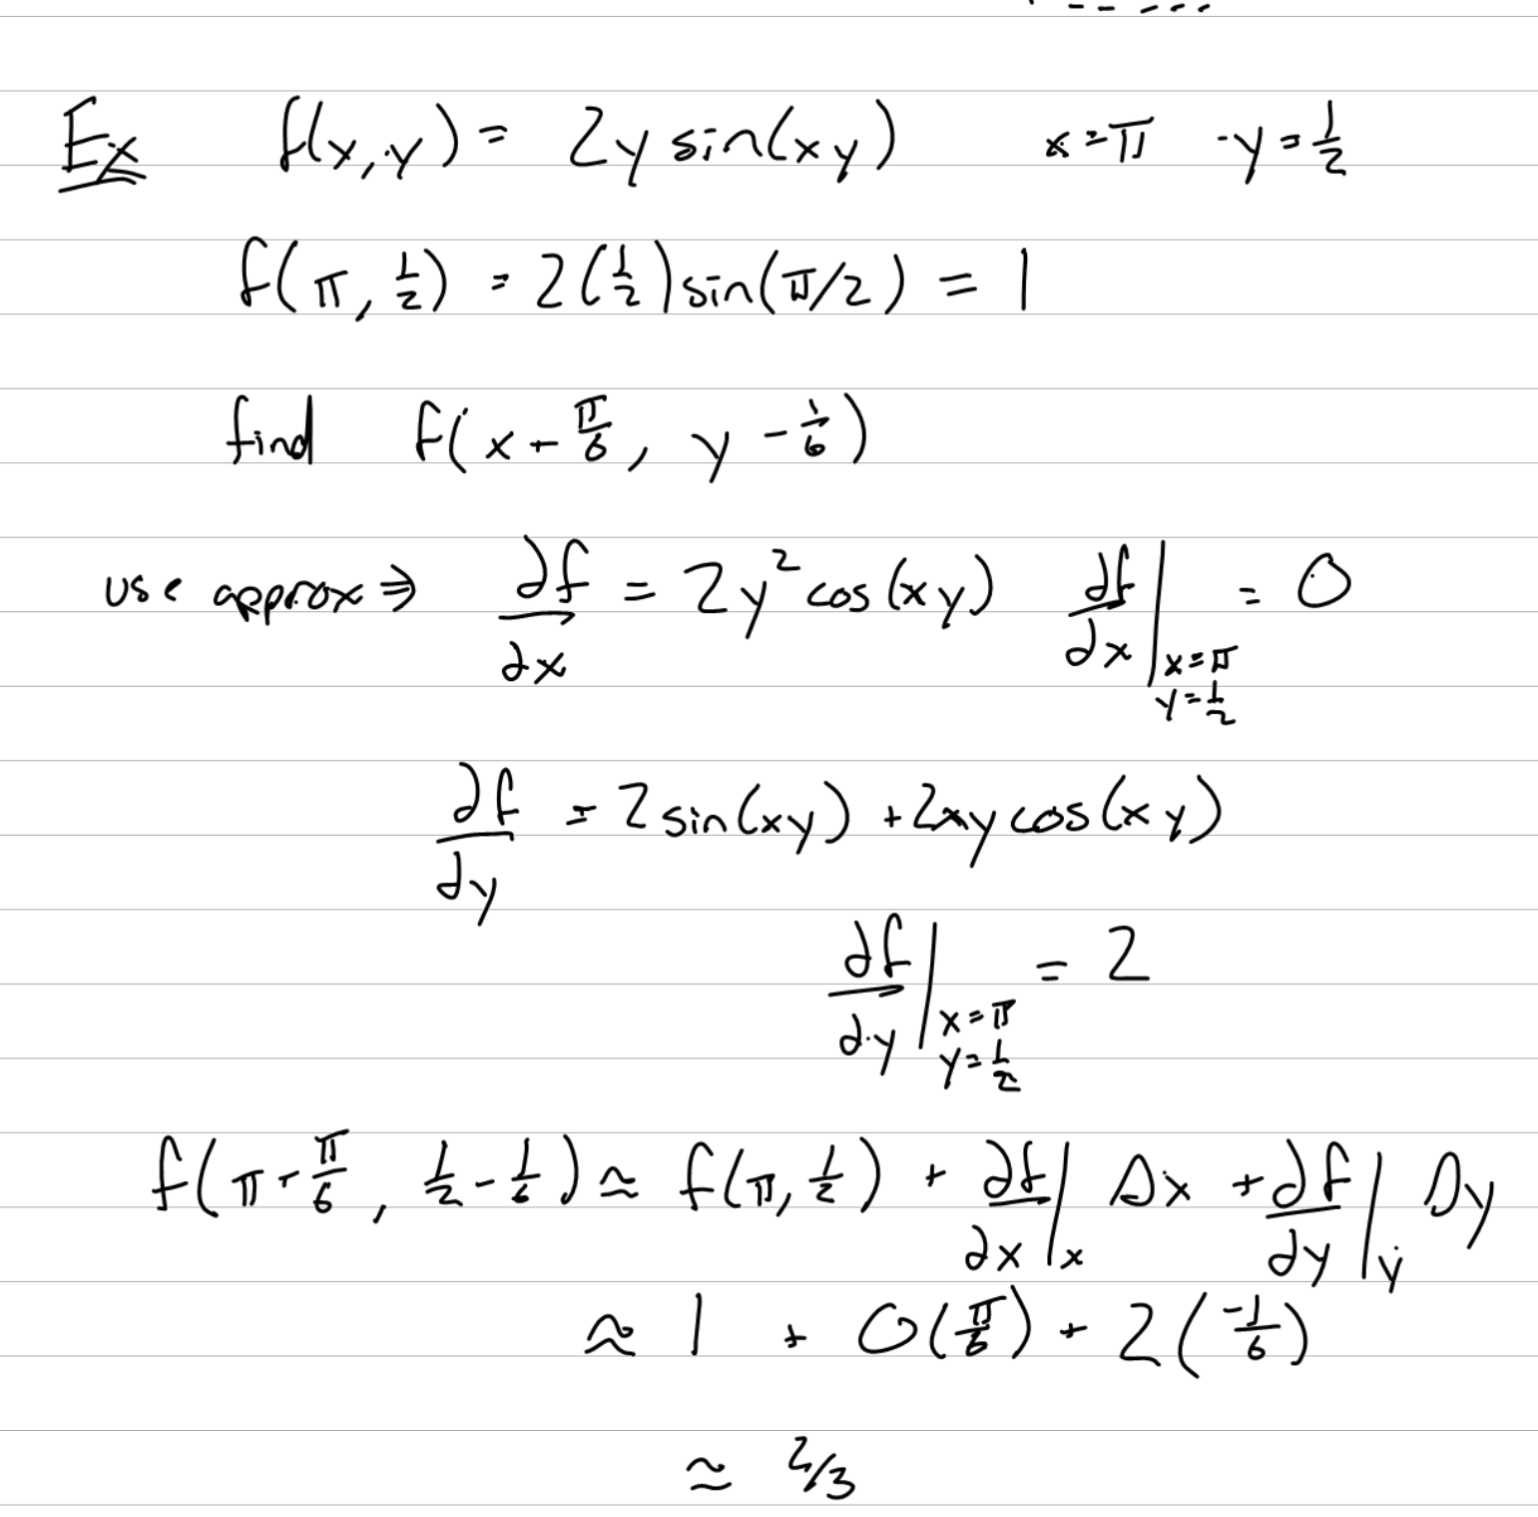 Ex f(x,y) = 2y sin(xy) x = π y = 1/2
f(π, 1/2) = 2(1/2)sin(π/2) = 1
find f(x + π/6, y - 1/6)
use approx ⇒ ∂f/∂x = 2y² cos(xy) ∂f/∂x |x=π y=1/2 = 0
∂f/∂y = 2 sin(xy) + 2xy cos(xy)
∂f/∂y |x=π y=1/2 = 2
f(π + π/6, 1/2 - 1/6) ≈ f(π, 1/2) + ∂f/∂x |x Δx + ∂f/∂y |y Δy
≈ 1 + 0(π/6) + 2(-1/6)
≈ 2/3